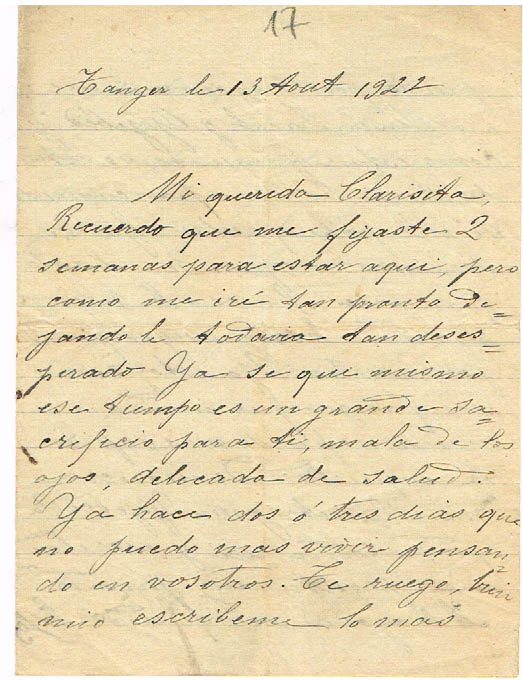 17
Tanger le 13 Aout 1922
Mi querida Clarisita,
Recuerdo que me fijaste 2
semanas para estar aqui, pero
como me iré tan pronto de=
jandole todavia tan deses=
perado Ya se que mismo
ese tiempo es un grande sa=
crificio para ti, mala de los
ojos, delicada de salud.
Ya hace dos ó tres dias que
no puedo mas vivir pensan=
do en vosotros. Te ruego, bien
mio escribeme lo mas